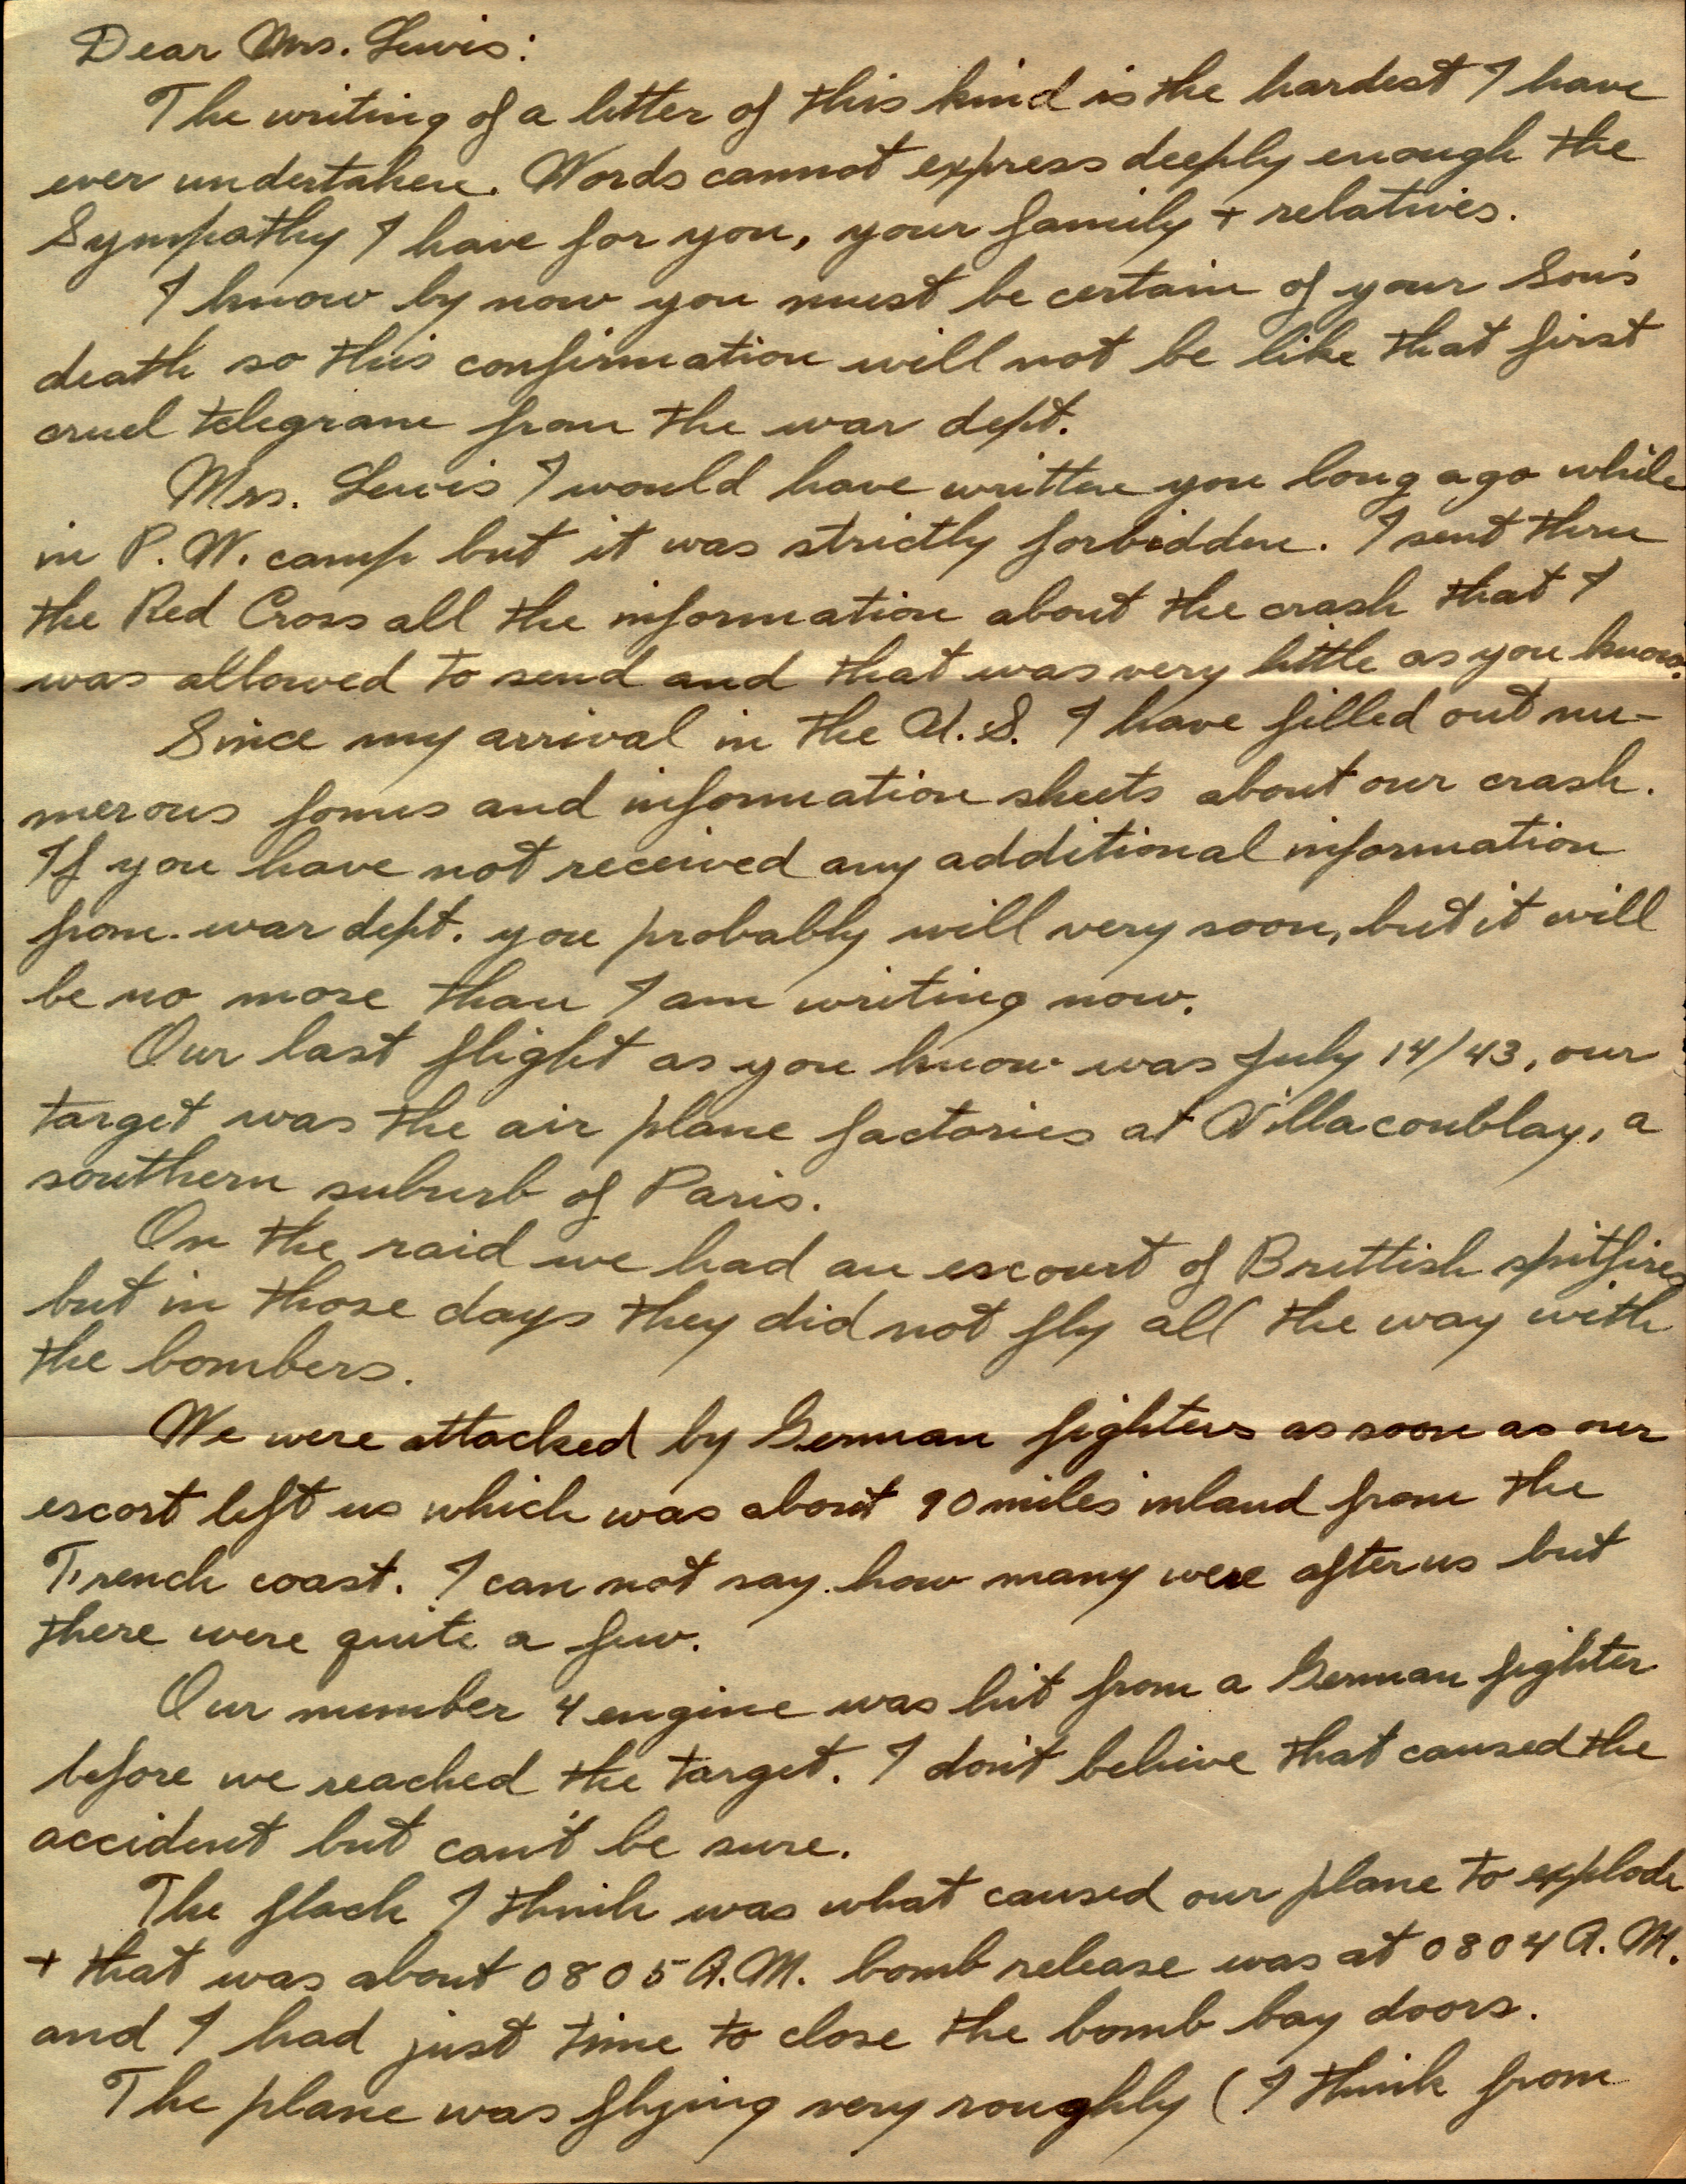 Dear Mrs. Lewis:
The writing of a letter of this kind is the hardest I have
ever undertaken. Words cannot express deeply enough the
Sympathy I have for you, your family + relatives.
I know by now you must be certain of your Son's
death so this confirmation will not be like that first
cruel telegram from the war dept.
Mrs. Lewis I would have written you long ago while
in P.W. camp but it was strictly forbidden. I sent thru
the Red Cross all the information about the crash that I
was allowed to send and that was very little as you know.
Since my arrival in the U.S. I have filled out nu-
merous forms and information sheets about our crash.
If you have not received any additional information
from war dept. you probably will very soon, but it will
be no more than I am writing now.
Our last flight as you know was July 14/43, our
target was the air plane factories at Villacoublay, a
southern suburb of Paris.
On the raid we had an escourt of Brittish spitfires
but in those days they did not fly all the way with
the bombers.
We were attacked by German fighters as soon as our
escort left us which was about 90 miles inland from the
French coast. I can not say how many were after us but
there were quite a few.
Our number 4 engine was hit from a German fighter
before we reached the target. I don't belive that caused the
accident but can't be sure.
The flack I think was what caused our plane to explode
+ that was about 0805 A.M. bomb release was at 0804 A.M.
and I had just time to close the bomb bay doors.
The plane was flying very roughly (I think from